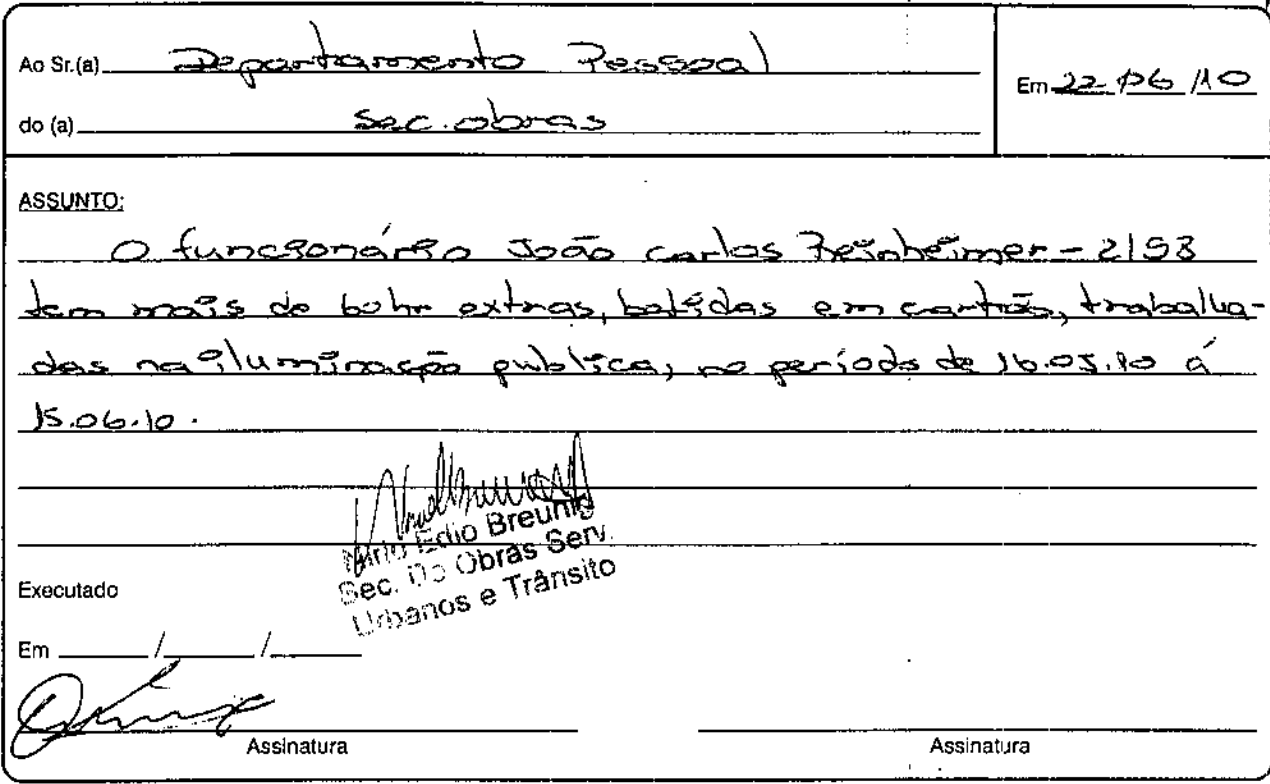 Ao Sr.(a) Departamento Pessoal
Em 22/06/10
do (a) Sec. obras
ASSUNTO:
O funcionário João Carlos Reinheimer - 2198
tem mais de 60 hr extras, batidas em cartão, trabalha-
das na iluminação publica, no período de 16.05.10 á
15.06.10.
Edio Breunig
Sec. De Obras Serv.
Urbanos e Trânsito
Executado
Em / /
Assinatura Assinatura